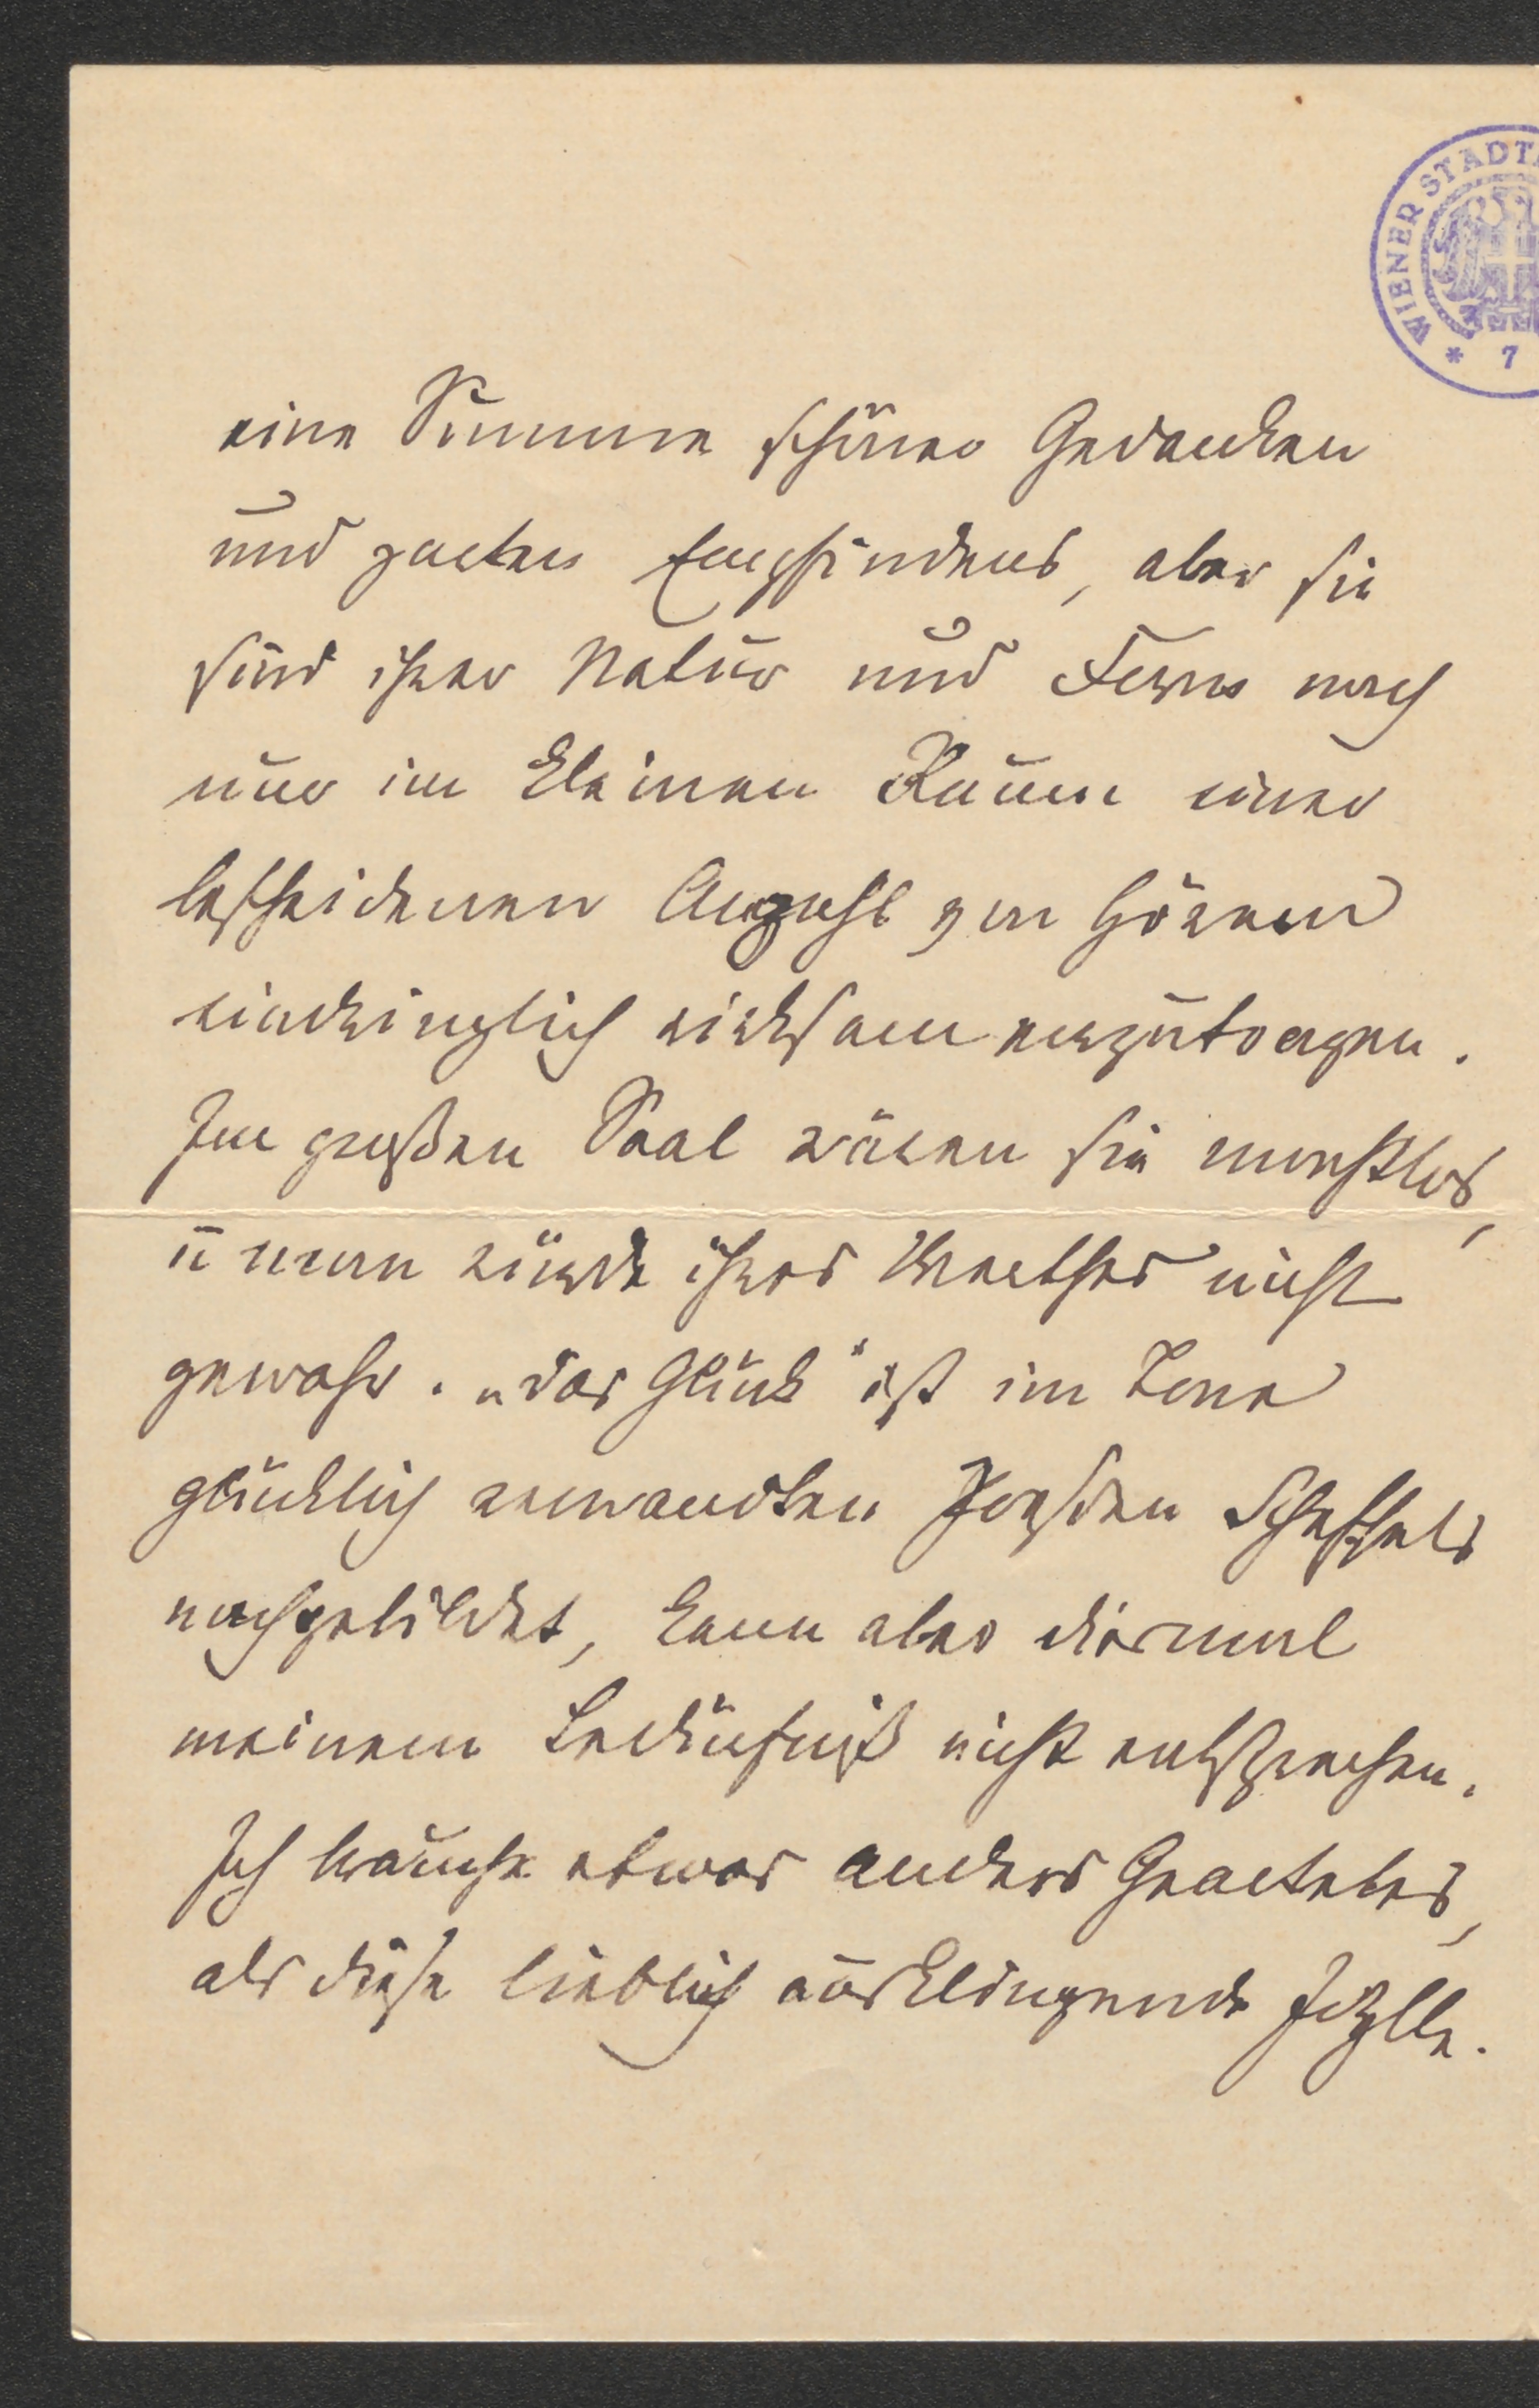 WIENER STADT
* 7
eine Summe schöner Gedanken
und zarten Empfindens, aber sie
sind ihrer Natur und Form nach
nur im kleinen Raum einer
bescheidenen Anzahl von Hörern
eindringlich wirksam vorzutragen.
Im großen Saal wären sie machtlos,
u man würde ihres Werthes nicht
gewahr. „das Glück" ist im Tone
glücklich verwandten Scheffels
nachgebildet, kann aber diesmal
meinem Bedürfniß nicht entsprechen.
Ich brauche etwas anders Geartetes,
als diese lieblich ausklingende Idylle.